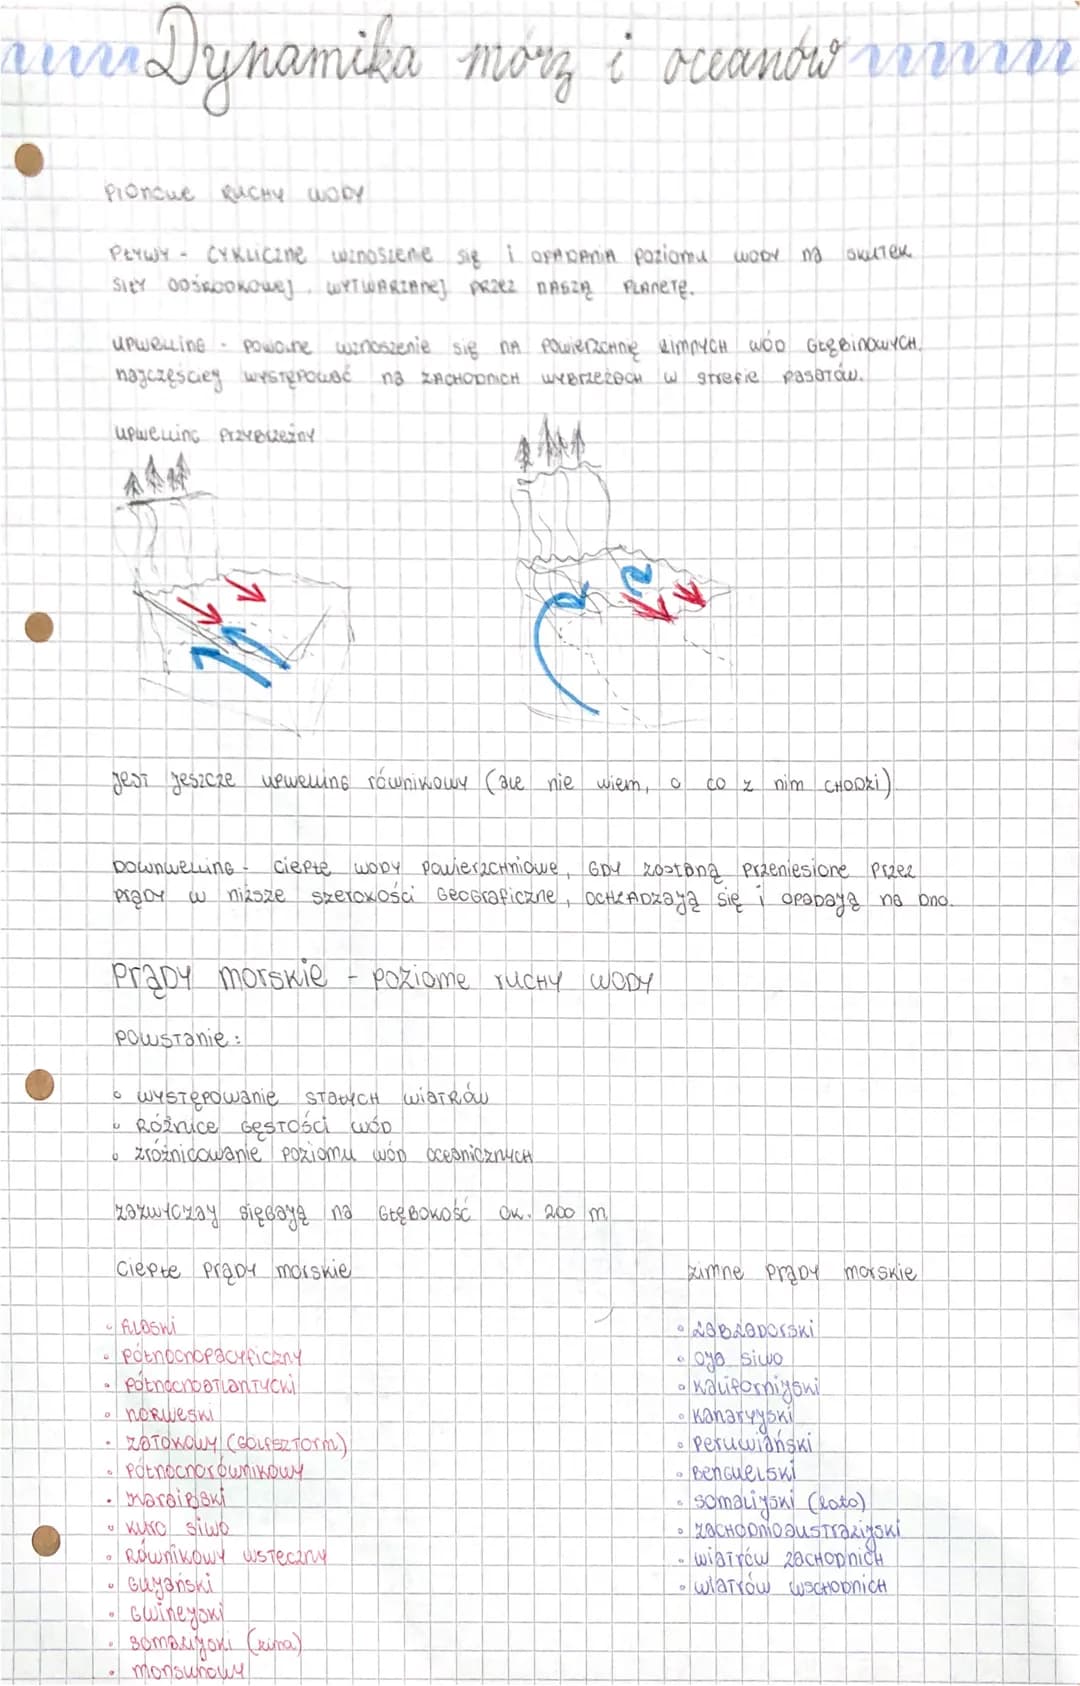 Dynamika mórz i oceanów
Pionowe ruchy wody
Pływy - cykliczne wznoszenie się i opadania poziomu wody na skutek
siły odśrodkowej, wytwarzanej przez naszą planetę.
upwelling - powolne wznoszenie się na powierzchnię zimnych wód głębinowych,
najczęściej występować na zachodnich wybrzeżach w strefie pasatów.
upwelling przybrzeżny
jest jeszcze upwelling równikowy (ale nie wiem, o co z nim chodzi)
Downwelling - ciepłe wody powierzchniowe, gdy zostaną przeniesione przez
prądy w niższe szerokości geograficzne, ochładzają się i opadają na dno.
Prądy morskie - poziome ruchy wody
powstanie:
• występowanie stałych wiatrów
• Różnice gęstości wód
• zróżnicowanie poziomu wód oceanicznych
zazwyczaj sięgają na głębokość ok. 200 m
ciepłe prądy morskie
• Alaski
• północnopacyficzny
• północnoatlantycki
• norweski
• zatokowy (golfsztorm)
• północnorównikowy
• karaibski
• kuro siwo
• Równikowy wsteczny
• Gujański
• Gwinejski
• somalijski (zima)
• monsunowy
zimne prądy morskie
• labradorski
• oja siwo
• kalifornijski
• kanaryjski
• peruwiański
• Benguelski
• somalijski (lato)
• zachodnioaustralijski
• wiatrów zachodnich
• wiatrów wschodnich